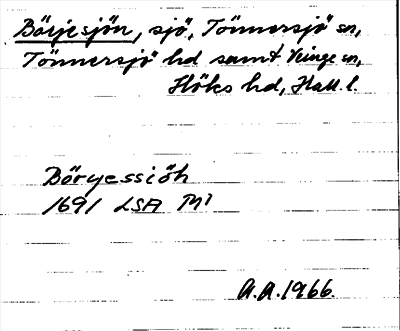 Börjesjön, sjö, Tönnersjö sn,
Tönnersjö hd samt Veinge sn,
Höks hd, Hall. l.
Böryessiöh
1691 LSA M1
A.A. 1966.